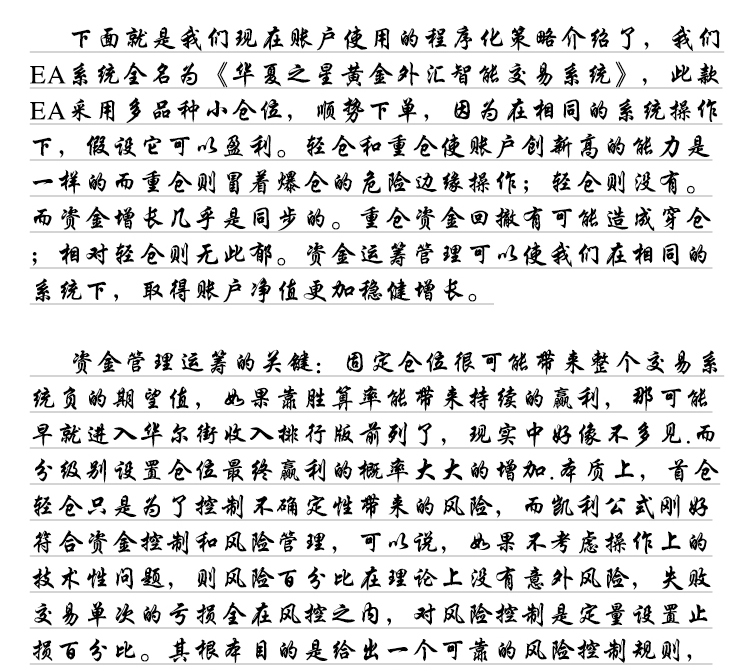 下面就是我们现在账户使用的程序化策略介绍了，我们
EA系统全名为《华夏之星黄金外汇智能交易系统》，此款
EA采用多品种小仓位，顺势下单，因为在相同的系统操作
下，假设它可以盈利。轻仓和重仓使账户创新高的能力是
一样的而重仓则冒着爆仓的危险边缘操作；轻仓则没有。
而资金增长几乎是同步的。重仓资金回撤有可能造成穿仓
；相对轻仓则无此郁。资金运筹管理可以使我们在相同的
系统下，取得账户净值更加稳健增长。
资金管理运筹的关键：固定仓位很可能带来整个交易系
统负的期望值，如果靠胜算率能带来持续的赢利，那可能
早就进入华尔街收入排行版前列了，现实中好像不多见.而
分级别设置仓位最终赢利的概率大大的增加.本质上，首仓
轻仓只是为了控制不确定性带来的风险，而凯利公式刚好
符合资金控制和风险管理，可以说，如果不考虑操作上的
技术性问题，则风险百分比在理论上没有意外风险，失败
交易单次的亏损全在风控之内，对风险控制是定量设置止
损百分比。其根本目的是给出一个可靠的风险控制规则，